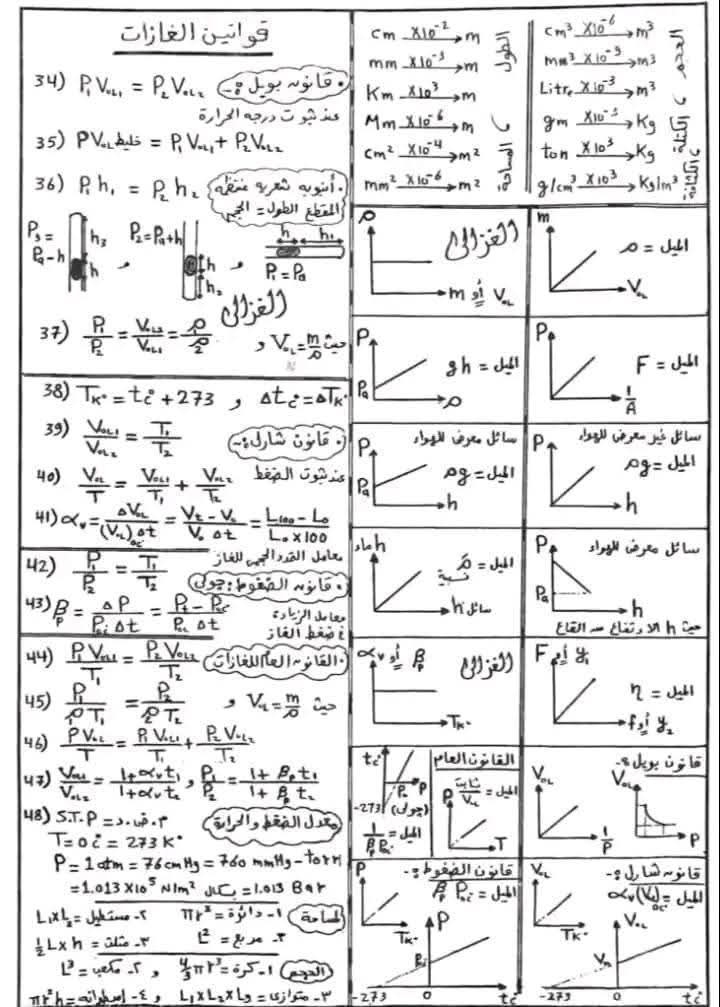 قوانين الغازات
34) P₁ V₀L₁ = P₂ V₀L₂ • قانون بويل :-
عند ثبوت درجة الحرارة
35) P V₀L خليط = P₁ V₀L₁ + P₂ V₀L₂
36) P₁ h₁ = P₂ h₂ • أنبوبه شعريه منتظمه
المقطع الطول = الحجم
P₃ = Pa - h h₃ h و P₂ = Pa + h h h₂ و h h₁ P₁ = Pa
الغزالى
37) P₁/P₂ = V₀L₂/V₀L₁ = ρ₁/ρ₂ و V₀L = m/ρ حيث
38) TK° = tc° + 273 و Δtc° = ΔTK°
39) V₀L₁/V₀L₂ = T₁/T₂ • قانون شارل :-
عند ثبوت الضغط
40) V₀L/T = V₀L₁/T₁ + V₀L₂/T₂
41) αv = ΔV₀L/(V₀L)₀c° Δt = Vt - V₀/V₀ Δt = L100 - L0/L0 x 100
معامل التمدد الحجمى للغاز
42) P₁/P₂ = T₁/T₂ • قانون الضغوط : چولى
43) βP = ΔP/P₀c° Δt = Pt - P₀c°/P₀c Δt معامل الزيادة
فى ضغط الغاز
44) P₁ V₀L₁/T₁ = P₂ V₀L₂/T₂ • القانون العام للغازات
45) P₁/ρ₁T₁ = P₂/ρ₂T₂ و V₀L = m/ρ حيث
46) P V₀L/T = P₁ V₀L₁/T₁ + P₂ V₀L₂/T₂
47) V₀L₁/V₀L₂ = 1+αv t₁/1+αv t₂ , P₁/P₂ = 1+βP t₁/1+βP t₂
48) S.T.P = م.ض.د معدل الضغط والحرارة
T = 0c° = 273 K°
P = 1 atm = 76 cmHg = 760 mmHg - torr
= 1.013 X 10⁵ N/m² = بسكال 1.013 Bar
المساحة ١- دائرة = πr² ٢- مستطيل = L₁xL₂
٣- مربع = L² ٣- مثلث = ½ L x h
الحجم ١- كرة = 4/3 πr³ و ٢- مكعب = L³
٣- متوازى = L₁xL₂xL₃ و ٤- اسطوانه = πr²h
الطول و المساحة
cm X10⁻² m
mm X10⁻³ m
Km X10³ m
Mm X10⁻⁶ m
cm² X10⁻⁴ m²
mm² X10⁻⁶ m²
الحجم و الكتلة و الكثافة
cm³ X10⁻⁶ m³
mm³ X10⁻⁹ m³
Litre X10⁻³ m³
gm X10⁻³ Kg
ton X10³ Kg
g/cm³ X10³ Kg/m³
ρ الغزالى m أو V₀L
m الميل = ρ V₀L
P الميل = gh Pa ρ
P الميل = F 1/A
سائل معرض للهواء
P الميل = ρg Pa h
سائل غير معرض للهواء
P الميل = ρg h
h ماء الميل = ρ نسبية h سائل
سائل معرض للهواء
P Pa h
حيث h الارتفاع من القاع
αv أو βP الغزالى TK°
F أو y₁ الميل = η f أو y₂
tc° P₀ P -273 (چولى)
الميل = 1/βP P₀c°
القانون العام
الميل = ثابت/V₀L P T
قانون بويل :-
V₀L 1/P V₀L P
قانون الضغوط :-
الميل = βP P₀c°
P TK° P P₀ -273 0 tc°
قانون شارل :-
الميل = αv(V₀L)₀c°
V₀L TK° V₀L V₀ -273 0 tc°